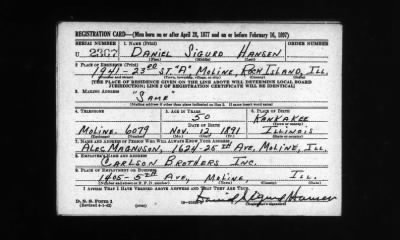 REGISTRATION CARD—(Men born on or after April 28, 1877 and on or before February 16, 1897)
SERIAL NUMBER 1. NAME (Print) ORDER NUMBER
U 2367 DANIEL SIGURD HANSEN
(First) (Middle) (Last)
2. PLACE OF RESIDENCE (Print)
1941-23RD ST "A", MOLINE, ROCK ISLAND, ILL.
(Number and street) (Town, township, village, or city) (County) (State)
[THE PLACE OF RESIDENCE GIVEN ON THE LINE ABOVE WILL DETERMINE LOCAL BOARD
JURISDICTION; LINE 2 OF REGISTRATION CERTIFICATE WILL BE IDENTICAL]
3. MAILING ADDRESS
"SAME"
[Mailing address if other than place indicated on line 2. If same insert word same]
4. TELEPHONE 5. AGE IN YEARS 6. PLACE OF BIRTH
50 KANKAKEE
DATE OF BIRTH
MOLINE. 6079 NOV. 12, 1891 ILLINOIS
7. NAME AND ADDRESS OF PERSON WHO WILL ALWAYS KNOW YOUR ADDRESS
ALEC MAGNUSON, 1624-25TH AVE, MOLINE, ILL
8. EMPLOYER'S NAME AND ADDRESS
CARLSON BROTHERS INC.
9. PLACE OF EMPLOYMENT OR BUSINESS
1405-5TH AVE, MOLINE, ILL.
(Number and street or R. F. D. number) (Town) (County) (State)
I AFFIRM THAT I HAVE VERIFIED ABOVE ANSWERS AND THAT THEY ARE TRUE.
D. S. S. Form 1
(Revised 4-1-42) Daniel Sigurd Hansen